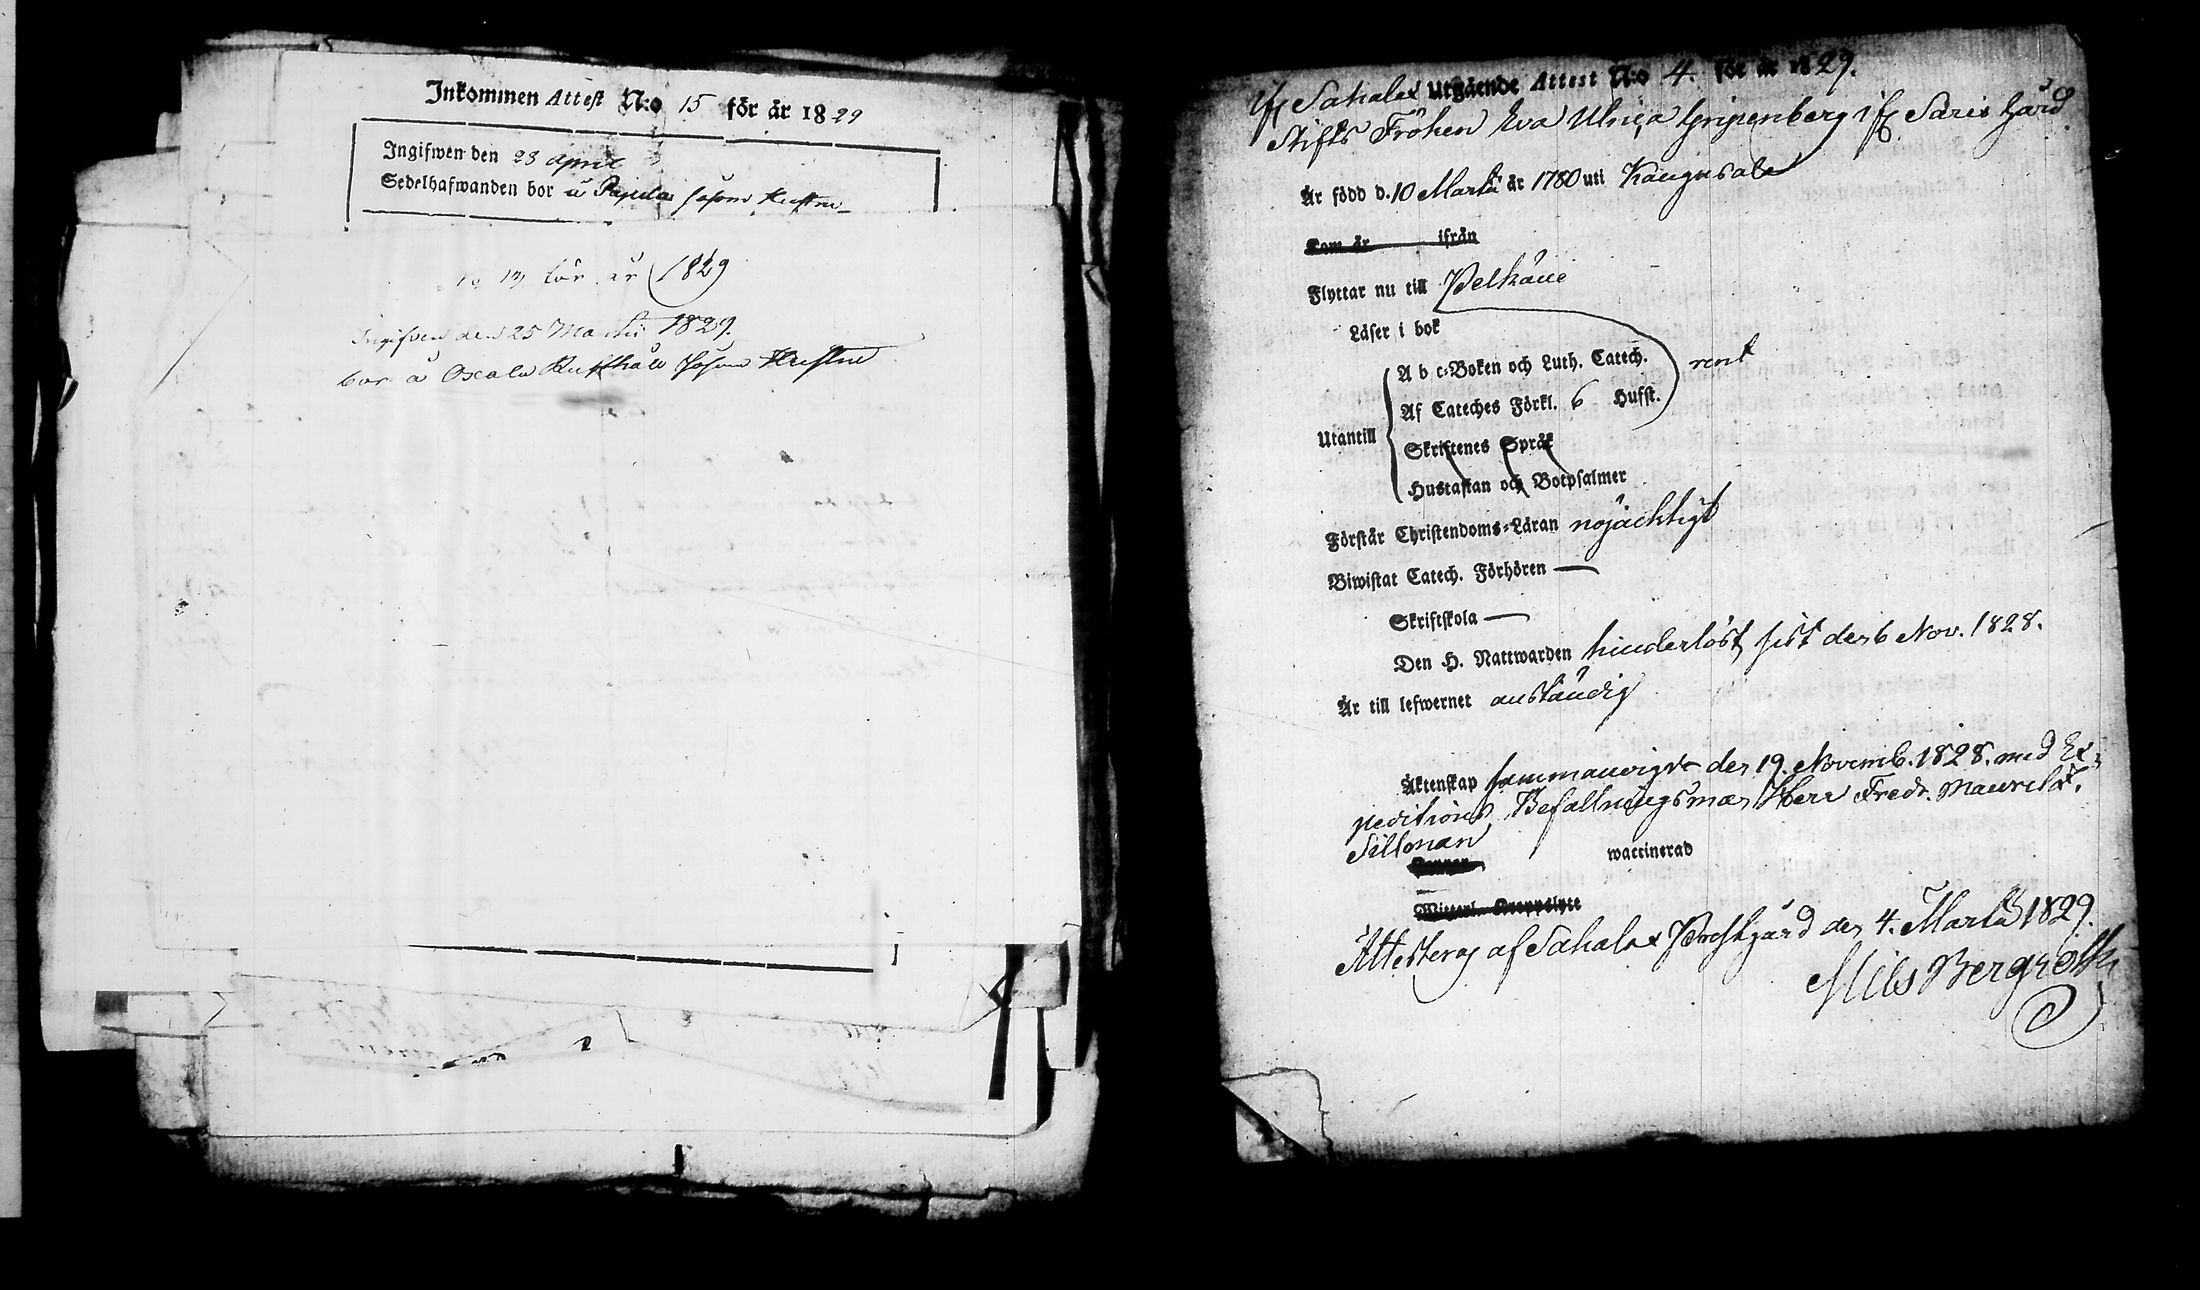 Inkommen Attest N:o 15 för år 1829
Ingifwen den 23 April
Sedelhafwanden bor å Pajula
No 13 för år 1829
Ingifven den 25 Martii 1829.
bor å
ifr. Sahalax Utgående Attest N:o 4. för år 1829.
Stifts Fröken Eva Ulrica Gripenberg ifr. Saris Gård
Är född d. 10 Martii år 1780 uti Kangasala
Kom år ifrån
Flyttar nu till Pelkäne
Läser i bok
A b c-Boken och Luth. Catech. rent
Af Cateches Förkl. 6 Hufst.
Utantill
Skriftenes Språk
Hustaflan och Botpsalmer
Förstår Christendoms-Läran nöjacktigt
Biwistat Catech. Förhören —
Skriftskola —
Den H. Nattwarden hinderlöst, sist den 6 Nov. 1828.
Är till lefwernet anständig
Äktenskap sammanvigd den 19. Novemb. 1828. med Ex-
peditions Befallningsman Herr Fredr. Mauritz
Sillman
waccinerad
Attesteras af Sahalax Prestgård den 4. Martii 1829.
Nils Bergroth